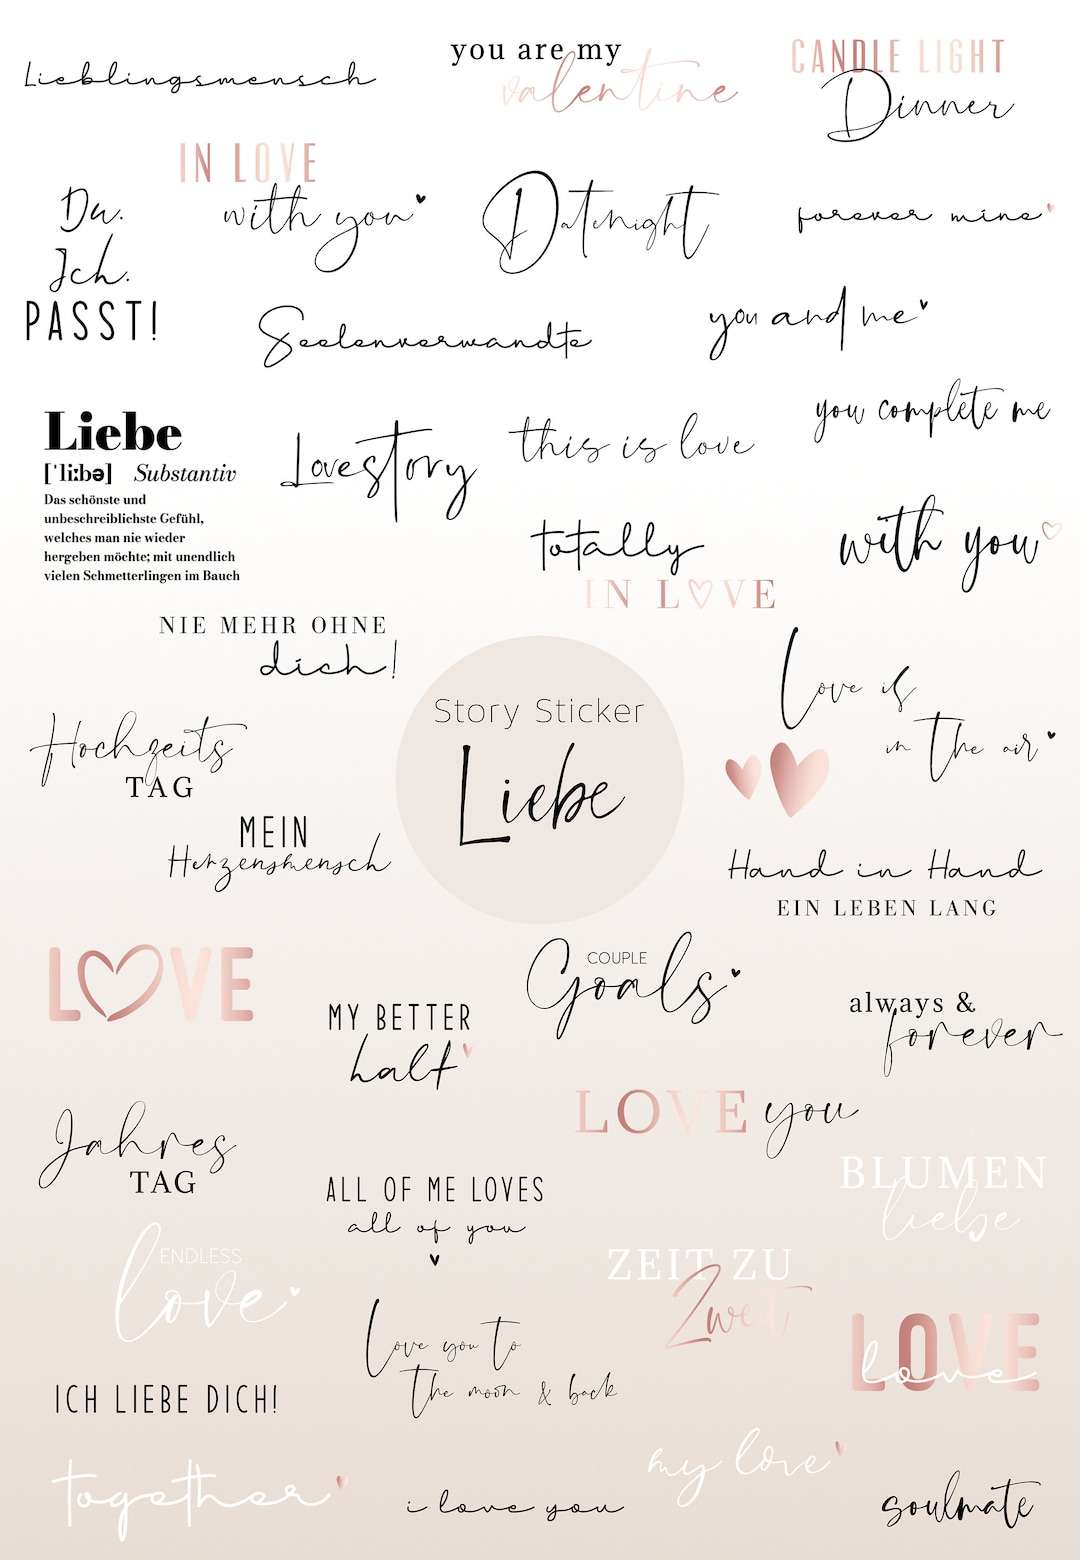 Lieblingsmensch
you are my
valentine
CANDLE LIGHT
Dinner
IN LOVE
with you
Du.
Ich.
PASST!
Datenight
forever mine
Seelenverwandte
you and me
Liebe
['li:bə] Substantiv
Das schönste und
unbeschreiblichste Gefühl,
welches man nie wieder
hergeben möchte; mit unendlich
vielen Schmetterlingen im Bauch
Lovestory
this is love
you complete me
totally
IN LOVE
with you
NIE MEHR OHNE
dich!
Story Sticker
Liebe
Love is
in the air
Hochzeits
TAG
MEIN
Herzensmensch
Hand in Hand
EIN LEBEN LANG
LOVE
MY BETTER
half
COUPLE
Goals
always &
forever
LOVE you
Jahres
TAG
ALL OF ME LOVES
all of you
BLUMEN
liebe
ENDLESS
love
ZEIT ZU
Zweit
Love you to
the moon & back
LOVE
love
ICH LIEBE DICH!
together
i love you
my love
soulmate